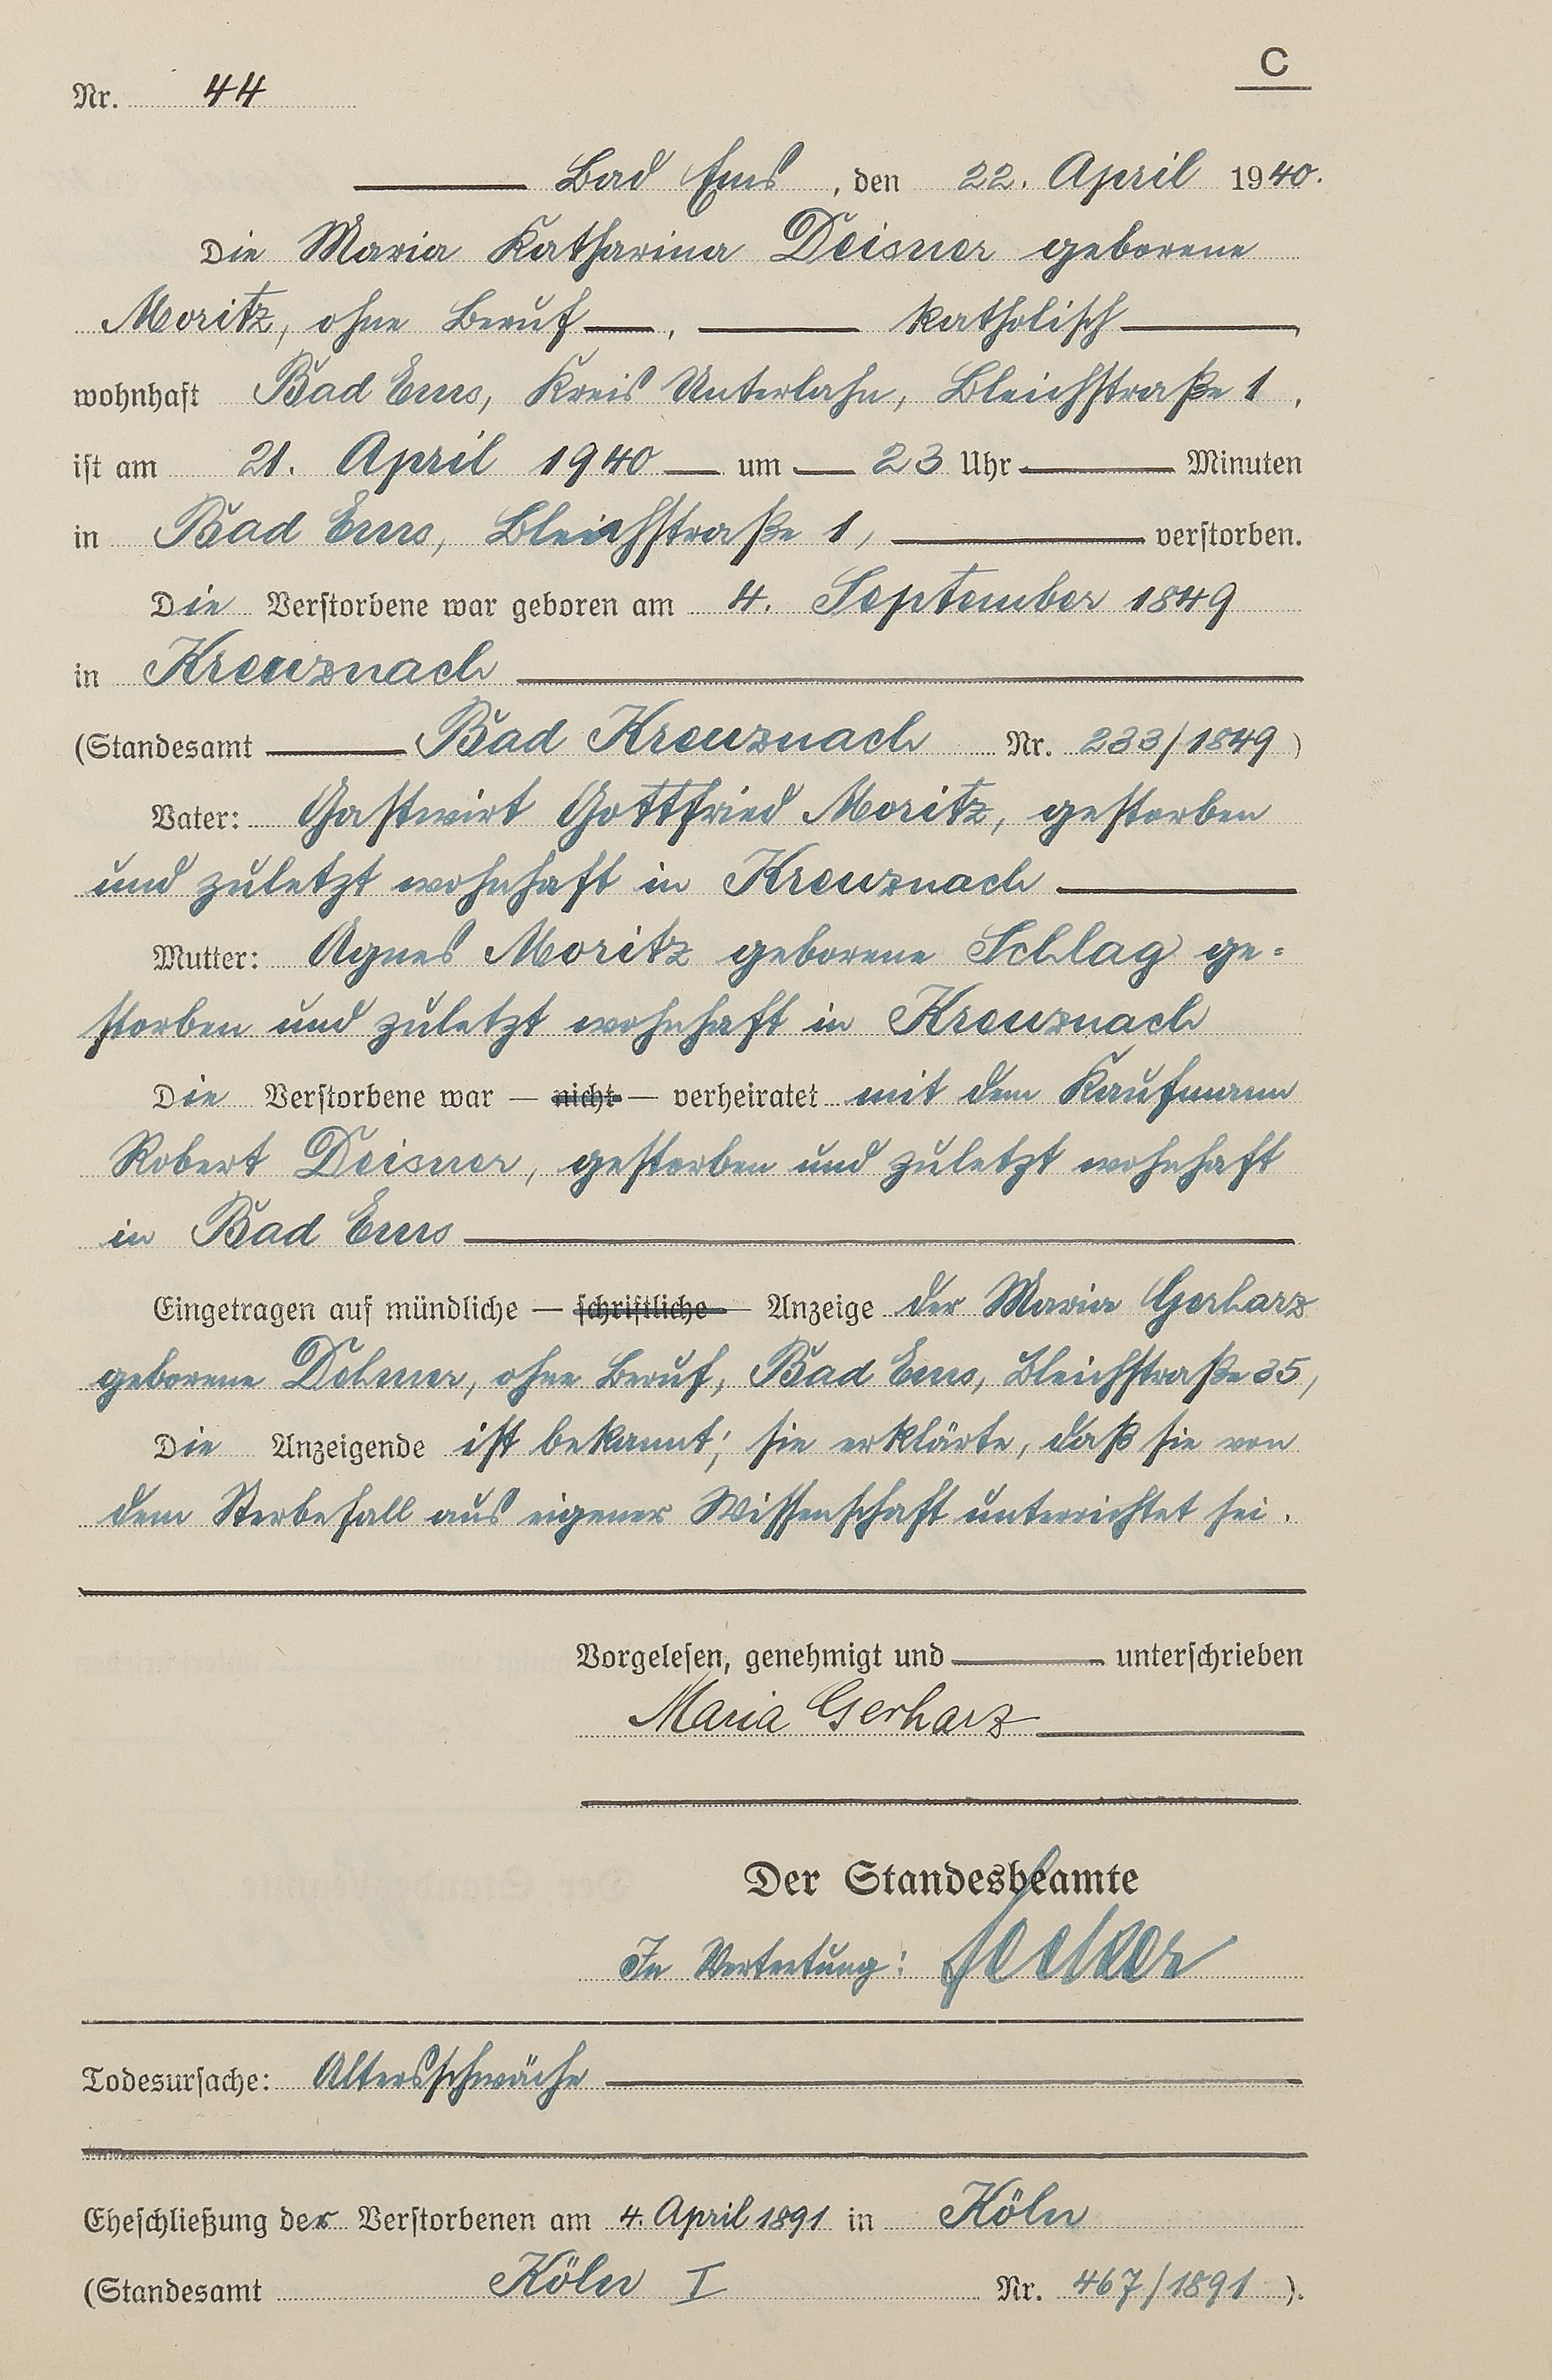 C
Nr. 44
Bad Ems, den 22. April 1940.
Die Maria Katharina Deisner geborene
Moritz, ohne Beruf, katholisch
wohnhaft Bad Ems, Kreis Unterlahn, Bleichstraße 1,
ist am 21. April 1940 um 23 Uhr Minuten
in Bad Ems, Bleichstraße 1, verstorben.
Die Verstorbene war geboren am 4. September 1849
in Kreuznach
(Standesamt Bad Kreuznach Nr. 233/1849)
Vater: Gastwirt Gottfried Moritz, gestorben
und zuletzt wohnhaft in Kreuznach
Mutter: Agnes Moritz geborene Schlag ge=
storben und zuletzt wohnhaft in Kreuznach
Die Verstorbene war — nicht — verheiratet mit dem Kaufmann
Robert Deisner, gestorben und zuletzt wohnhaft
in Bad Ems
Eingetragen auf mündliche — schriftliche — Anzeige der Maria Gerharz
geborene ohne Beruf, Bad Ems, Bleichstraße 35,
Die Anzeigende ist bekannt; sie erklärte, daß sie von
dem Sterbefall aus eigener Wissenschaft unterrichtet sei.
Vorgelesen, genehmigt und unterschrieben
Maria Gerharz
Der Standesbeamte
In Vertretung:
Todesursache: Altersschwäche
Eheschließung der Verstorbenen am 4. April 1891 in Köln
(Standesamt Köln I Nr. 467/1891).